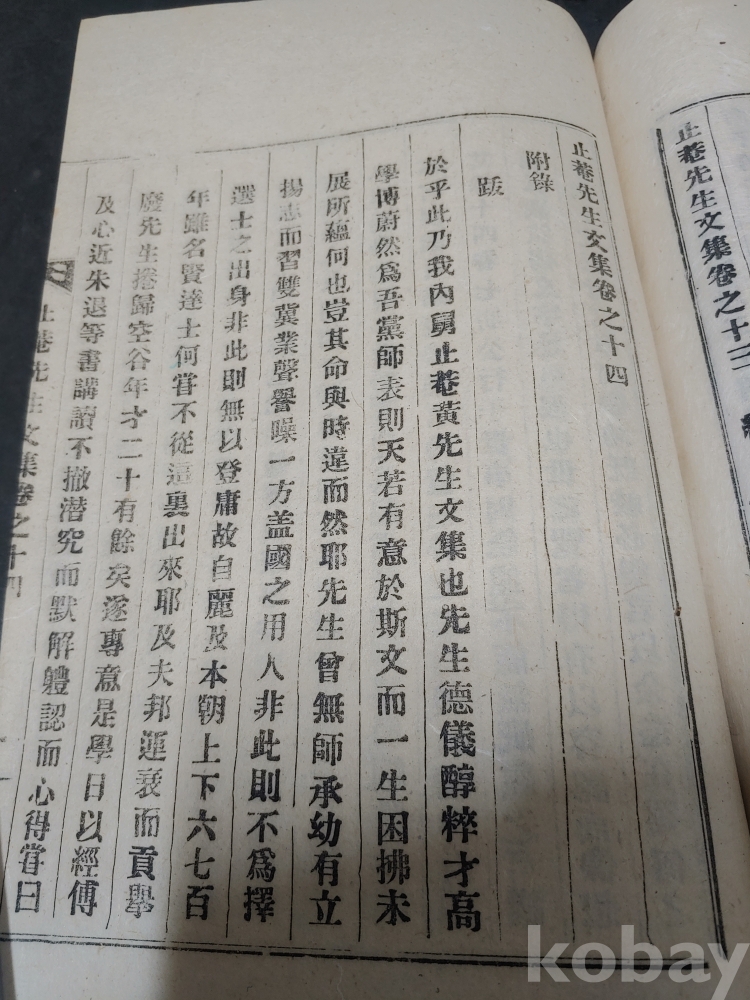 止菴先生文集卷之十三
止菴先生文集卷之十四
附錄
跋
於乎此乃我內舅止菴黃先生文集也先生德儀醇粹才高
學博蔚然爲吾黨師表則天若有意於斯文而一生困拂未
展所蘊何也豈其命與時違而然耶先生曾無師承幼有立
揚志而習雙冀業聲譽噪一方盖國之用人非此則不爲擇
選士之出身非此則無以登庸故自麗及本朝上下六七百
年雖名賢達士何嘗不從這裏出來耶及夫邦運衰而貢擧
廢先生捲歸空谷年才二十有餘矣遂專意是學日以經傳
及心近朱退等書講讀不撤潛究而默解軆認而心得嘗曰
止菴先生文集卷之十四
kobay